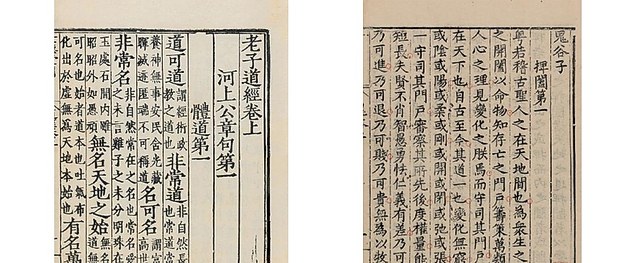 老子道經卷上
河上公章句第一
體道第一
道可道謂經術政教之道也非常道非自然長也常道當
養神無事安民含光藏暉滅迹匿端不可稱道名可名謂富高世
非常名非自然常在之名也常名愛之未言雞子之未分明珠在
玉處石間内雖昭昭外如愚頑無名天地之始無名道無
可名也始者道本也吐氣布化出於虛無為天地本始也有名萬
鬼谷子
捭闔第一
粤若稽古聖人之在天地間也為衆生之
之開闔以命物知存亡之門戶籌策萬類
人心之理見變化之朕焉而守司其門戶
在天下也自古至今其道一也變化無窮
或陰或陽或柔或剛或開或閉或弛或張
一守司其門戶審察其所先後度權量能
短長夫賢不肖智愚勇怯仁義有差乃可
乃可進乃可退乃可賤乃可貴無為以牧